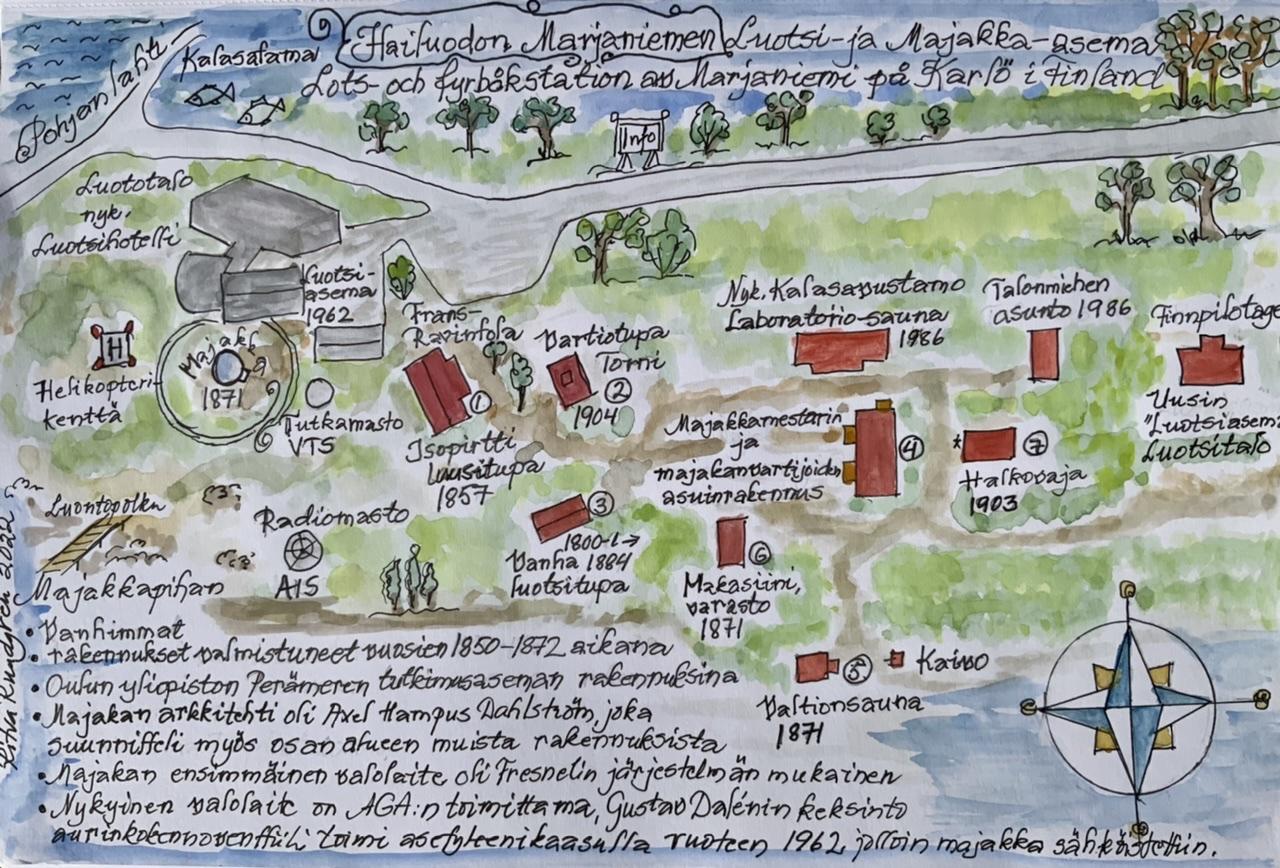 Hailuodon Marjaniemen Luotsi- ja Majakka-asema
Lots- och fyrbåkstation av Marjaniemi på Karlö i Finland
Pohjanlahti
Kalasatama
Info
Luototalo
nyk.
Luotsihotelli
Luotsi-
asema
1962
Frans-
Ravintola
Vartiotupa
Torni
②
1904
Nyk. Kalasavustamo
Laboratorio-sauna
1986
Talonmiehen
asunto 1986
Finnpilotage
Uusin
"Luotsiasema
Luotsitalo
H
Helikopteri-
kenttä
Majakka
1871
Tutkamasto
VTS
①
Isopirtti
Uusitupa
1857
Majakkamestarin
ja
majakanvartijoiden
asuinrakennus
④
⑦
Halkovaja
1903
Luontopolku
Radiomasto
AIS
③
1800-l→
Vanha 1884
luotsitupa
⑥
Makasiini,
varasto
1871
⑤
Kaivo
Valtionsauna
1871
Majakkapihan
• Vanhimmat
• rakennukset valmistuneet vuosien 1850-1872 aikana
• Oulun yliopiston Perämeren tutkimusaseman rakennuksina
• Majakan arkkitehti oli Axel Hampus Dahlström, joka
suunnitteli myös osan alueen muista rakennuksista
• Majakan ensimmäinen valolaite oli Fresnelin järjestelmän mukainen
• Nykyinen valolaite on AGA:n toimittama, Gustav Dalénin keksintö
toimi asetyleenikaasulla vuoteen 1962 jolloin majakka sähköistettiin.
Rundgren 2022